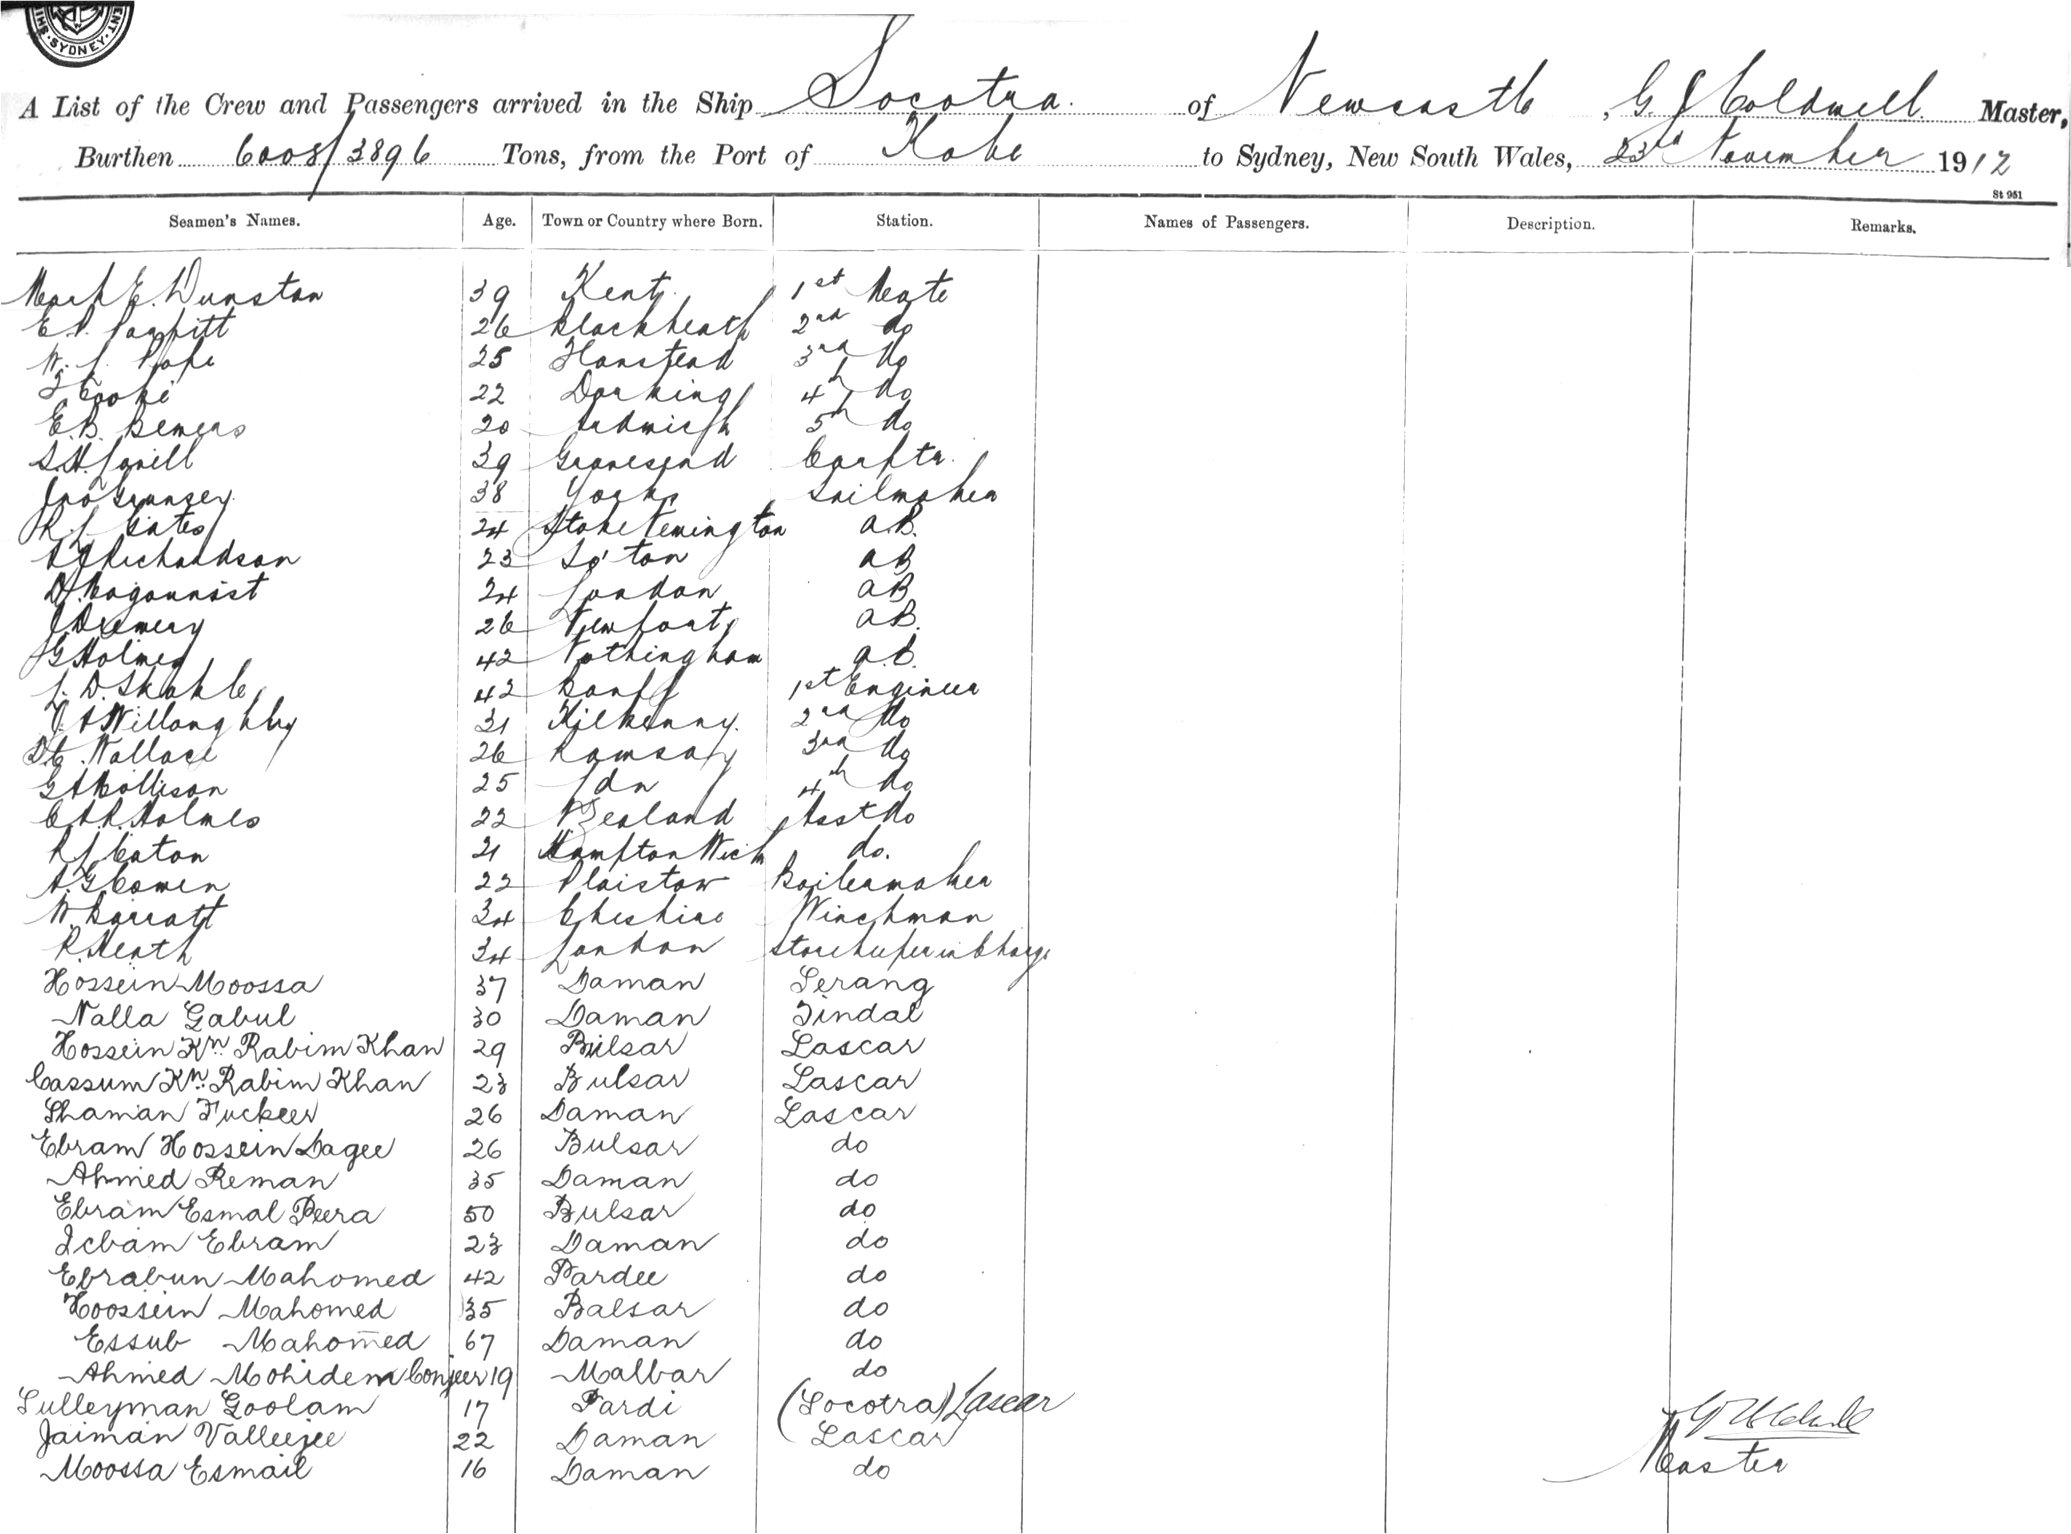 SYDNEY
A List of the Crew and Passengers arrived in the Ship Socotra. of Newcastle, G. J Coldwell Master,
Burthen 6008/3896 Tons, from the Port of Kobe to Sydney, New South Wales, 23rd November 1912
St 951
Seamen's Names. Age. Town or Country where Born. Station. Names of Passengers. Description. Remarks.
Mark E. Dunstan 39 Kent 1st Mate
E. P. Parfitt 26 Blackheath 2nd do
W. L. Pope 25 Hanstead 3rd do
Cooke 22 Dorking 4th do
E.B. 20 5th do
S.H. 39 Gravesend Carptr.
Jno Gramsey 38 Yorks Sailmaker
R. L. Cates 24 Stoke Newington A.B.
Richardson 23 So'ton AB
24 London AB
J Drewery 26 Newport A.B.
G Holmes 42 Nottingham A.B.
J. D. Skakle 42 Banff 1st Engineer
V. A Willoughby 31 Kilkenny. 2nd do
Wallace 26 Ramsay 3rd do
G A Mollison 25 Ldn 4th do
C A R. Holmes 22 N Zealand Asst do
R J Caton 21 Hampton Wick do.
A. G Cowen 22 Plaistow Boilermaker
W. Barratt 34 Cheshire Winchman
R. Heath 34 London Storekeeper in Charge
Hossein Moossa 37 Daman Serang
Nalla Gabul 30 Daman Tindal
Hossein Kn. Rabim Khan 29 Bulsar Lascar
Cassum Kn. Rabim Khan 23 Bulsar Lascar
Shaman Fuckeer 26 Daman Lascar
Ebram Hossein Dagee 26 Bulsar do
Ahmed Reman 35 Daman do
Ebram Esmal Peera 50 Bulsar do
Icbam Ebram 23 Daman do
Ebrabun Mahomed 42 Pardee do
Hoossein Mahomed 35 Balsar do
Essub Mahomed 67 Daman do
Ahmed Mohidem Conjeer 19 Malbar do
Sulleyman Goolam 17 Pardi (Socotra) Lascar
Jaiman Valleejee 22 Daman Lascar
Moossa Esmail 16 Daman do Master